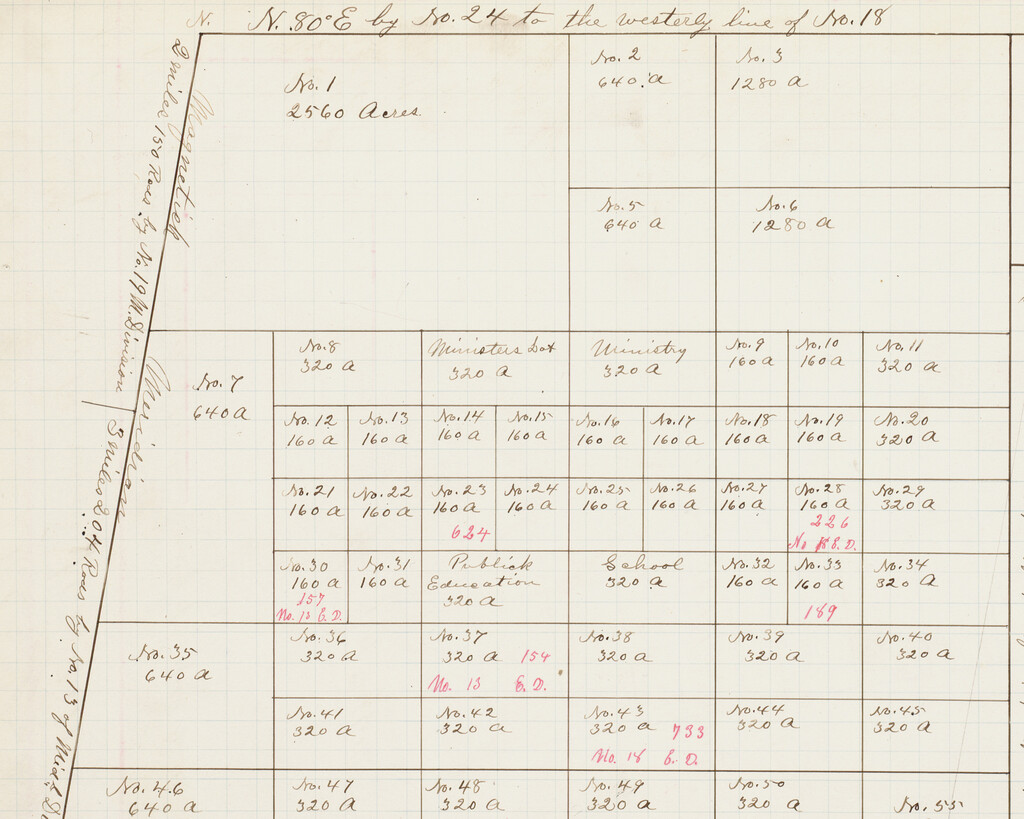 N. N. 80° E by No. 24 to the westerly line of No. 18
2 miles 150 Rods by No. 19 M. Division
Magnetick
Meridian
3 miles 204 Rods by No. 13 of
No. 1
2560 Acres
No. 2
640 a
No. 3
1280 a
No. 5
640 a
No. 6
1280 a
No. 7
640 a
No. 8
320 a
Ministers Lot
320 a
Ministry
320 a
No. 9
160 a
No. 10
160 a
No. 11
320 a
No. 12
160 a
No. 13
160 a
No. 14
160 a
No. 15
160 a
No. 16
160 a
No. 17
160 a
No. 18
160 a
No. 19
160 a
No. 20
320 a
No. 21
160 a
No. 22
160 a
No. 23
160 a
624
No. 24
160 a
No. 25
160 a
No. 26
160 a
No. 27
160 a
No. 28
160 a
226
No. 18 E. D.
No. 29
320 a
No. 30
160 a
157
No. 13 E. D.
No. 31
160 a
Publick
Education
320 a
School
320 a
No. 32
160 a
No. 33
160 a
189
No. 34
320 a
No. 35
640 a
No. 36
320 a
No. 37
320 a 154
No. 13 E. D.
No. 38
320 a
No. 39
320 a
No. 40
320 a
No. 41
320 a
No. 42
320 a
No. 43
320 a 733
No. 18 E. D.
No. 44
320 a
No. 45
320 a
No. 46
640 a
No. 47
320 a
No. 48
320 a
No. 49
320 a
No. 50
320 a
No. 55